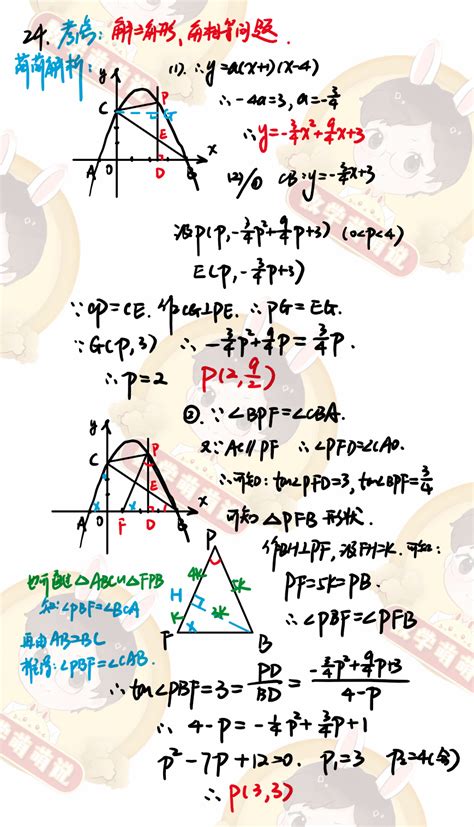 24. 考点: 解三角形、角相等问题.
萌萌解析:
(1). ∵y=a(x+1)(x-4)
∴-4a=3, a=-3/4
∴y=-3/4x²+9/4x+3
y
C
P
G
E
A
O
D
B
x
(2)/① CB:y=-3/4x+3
设P(p,-3/4p²+9/4p+3) (0<p<4)
E(p,-3/4p+3)
∵CP=CE. 作CG⊥PE. ∴PG=EG.
∵G(p,3) ∴-3/4p²+9/4p=3/4p.
∴p=2 P(2,9/2)
②. ∵∠BPF=∠CBA.
又∵AC∥PF ∴∠PFD=∠CAO.
∴可知: tan∠PFD=3, tan∠BPF=3/4
可知△PFB形状.
y
C
P
E
A
O
F
D
B
x
作BH⊥PF, 设FH=k. 可知:
PF=5k=PB.
∴∠PBF=∠PFB
P
4k
5k
H
k
3k
F
B
也可通过△ABC∽△FPB
知:∠PBF=∠BCA
再由AB=BC
推得:∠PBF=∠CAB.
∴tan∠PBF=3=PD/BD=(-3/4p²+9/4p+3)/(4-p)
∴4-p=-1/4p²+3/4p+1
p²-7p+12=0. p₁=3 p₂=4(舍)
∴P(3,3)